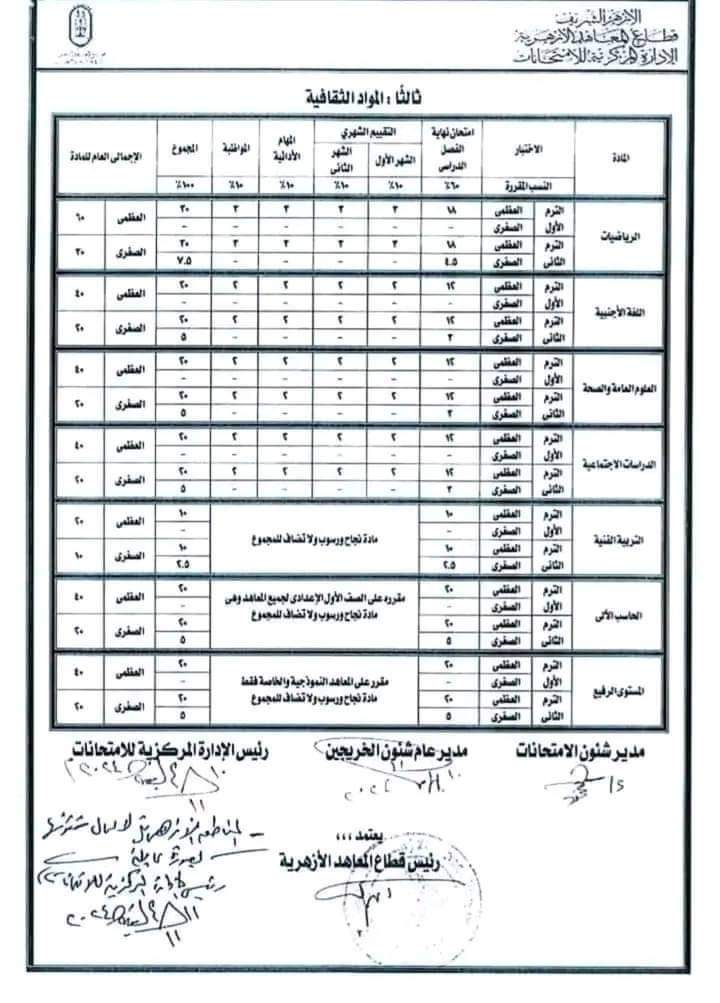 الأزهر الشريف
قطاع المعاهد الأزهرية
الإدارة المركزية للامتحانات
ثالثًا : المواد الثقافية
المادة الاختبار امتحان نهاية الفصل الدراسي التقييم الشهري المهام الأدائية المواظبة المجموع الإجمالى العام للمادة
الشهر الأول الشهر الثانى
النسب المقررة ٦٠٪ ١٠٪ ١٠٪ ١٠٪ ١٠٪ ١٠٠٪
الرياضيات الترم الأول العظمى ١٨ ٣ ٣ ٣ ٣ ٣٠ العظمى ٦٠
الصغرى - - - - - -
الترم الثانى العظمى ١٨ ٣ ٣ ٣ ٣ ٣٠ الصغرى ٣٠
الصغرى ٤.٥ - - - - ٧.٥
اللغة الأجنبية الترم الأول العظمى ١٢ ٢ ٢ ٢ ٢ ٢٠ العظمى ٤٠
الصغرى - - - - - -
الترم الثانى العظمى ١٢ ٢ ٢ ٢ ٢ ٢٠ الصغرى ٢٠
الصغرى ٣ - - - - ٥
العلوم العامة والصحة الترم الأول العظمى ١٢ ٢ ٢ ٢ ٢ ٢٠ العظمى ٤٠
الصغرى - - - - - -
الترم الثانى العظمى ١٢ ٢ ٢ ٢ ٢ ٢٠ الصغرى ٢٠
الصغرى ٣ - - - - ٥
الدراسات الاجتماعية الترم الأول العظمى ١٢ ٢ ٢ ٢ ٢ ٢٠ العظمى ٤٠
الصغرى - - - - - -
الترم الثانى العظمى ١٢ ٢ ٢ ٢ ٢ ٢٠ الصغرى ٢٠
الصغرى ٣ - - - - ٥
التربية الفنية الترم الأول العظمى ١٠ مادة نجاح ورسوب ولا تضاف للمجموع ١٠ العظمى ٢٠
الصغرى - -
الترم الثانى العظمى ١٠ ١٠ الصغرى ١٠
الصغرى ٢.٥ ٢.٥
الحاسب الآلى الترم الأول العظمى ٢٠ مقرره على الصف الأول الإعدادى لجميع المعاهد وهى ٢٠ العظمى ٤٠
الصغرى - مادة نجاح ورسوب ولا تضاف للمجموع -
الترم الثانى العظمى ٢٠ ٢٠ الصغرى ٢٠
الصغرى ٥ ٥
المستوى الرفيع الترم الأول العظمى ٢٠ مقرر على المعاهد النموذجية والخاصة فقط ٢٠ العظمى ٤٠
الصغرى - مادة نجاح ورسوب ولا تضاف للمجموع -
الترم الثانى العظمى ٢٠ ٢٠ الصغرى ٢٠
الصغرى ٥ ٥
مدير شئون الامتحانات مدير عام شئون الخريجين رئيس الإدارة المركزية للامتحانات
يعتمد ،،،
رئيس قطاع المعاهد الأزهرية